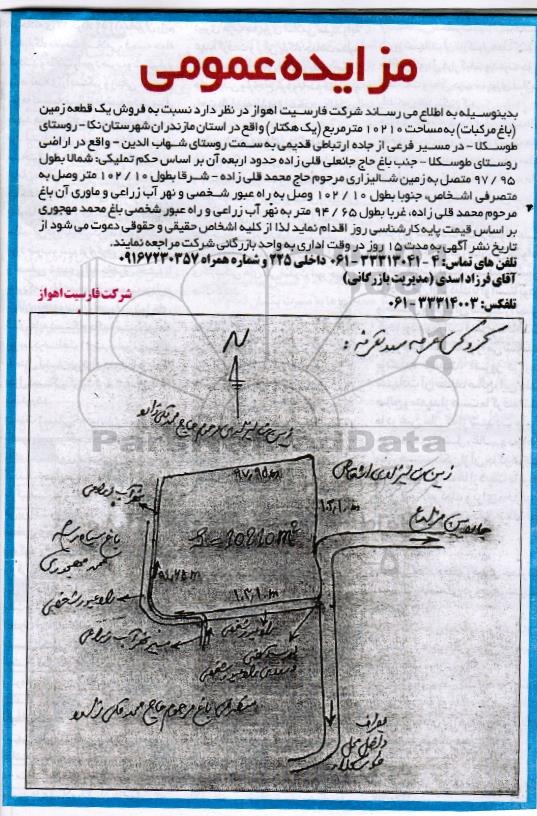 مزایده عمومی
بدینوسیله به اطلاع می رساند شرکت فارسیت اهواز در نظر دارد نسبت به فروش یک قطعه زمین
(باغ مرکبات) به مساحت ۱۰۲۱۰ مترمربع (یک هکتار) واقع در استان مازندران شهرستان نکا - روستای
طوسکلا - در مسیر فرعی از جاده ارتباطی قدیمی به سمت روستای شهاب الدین - واقع در اراضی
روستای طوسکلا - جنب باغ حاج جانعلی قلی زاده حدود اربعه آن بر اساس حکم تملیکی: شمالا بطول
۹۷/۹۵ متصل به زمین شالیزاری مرحوم حاج محمد قلی زاده - شرقا بطول ۱۰۲/۱۰ متر وصل به
متصرفی اشخاص، جنوبا بطول ۱۰۲/۱۰ وصل به راه عبور شخصی و نهر آب زراعی و ماوری آن باغ
مرحوم محمد قلی زاده، غربا بطول ۹۴/۶۵ متر به نهر آب زراعی و راه عبور شخصی باغ محمد مهجوری
بر اساس قیمت پایه کارشناسی روز اقدام نماید لذا از کلیه اشخاص حقیقی و حقوقی دعوت می شود از
تاریخ نشر آگهی به مدت ۱۵ روز در وقت اداری به واحد بازرگانی شرکت مراجعه نمایند.
تلفن های تماس: ۴ - ۳۳۳۱۳۰۴۱-۰۶۱ داخلی ۲۲۵ و شماره همراه ۰۹۱۶۷۲۳۰۳۵۷
آقای فرزاد اسدی (مدیریت بازرگانی)
تلفکس: ۳۳۳۱۴۰۰۳-۰۶۱
شرکت فارسیت اهواز
N
زمین شالیزاری مرحوم حاج محمد قلی زاده
ParsNamadData
۹۷,۹۵m
زمین شالیزاری اشخاص
نهر آب زراعی
۱۰۲,۱۰m
S=10210m²
باغ
محمد مهجوری
۱۰۲,۱۰m
راه عبور شخصی
راه عبور شخصی
نهر آب زراعی
باغ مرحوم حاج محمد قلی زاده
بطرف
داخل محل
طوسکلا